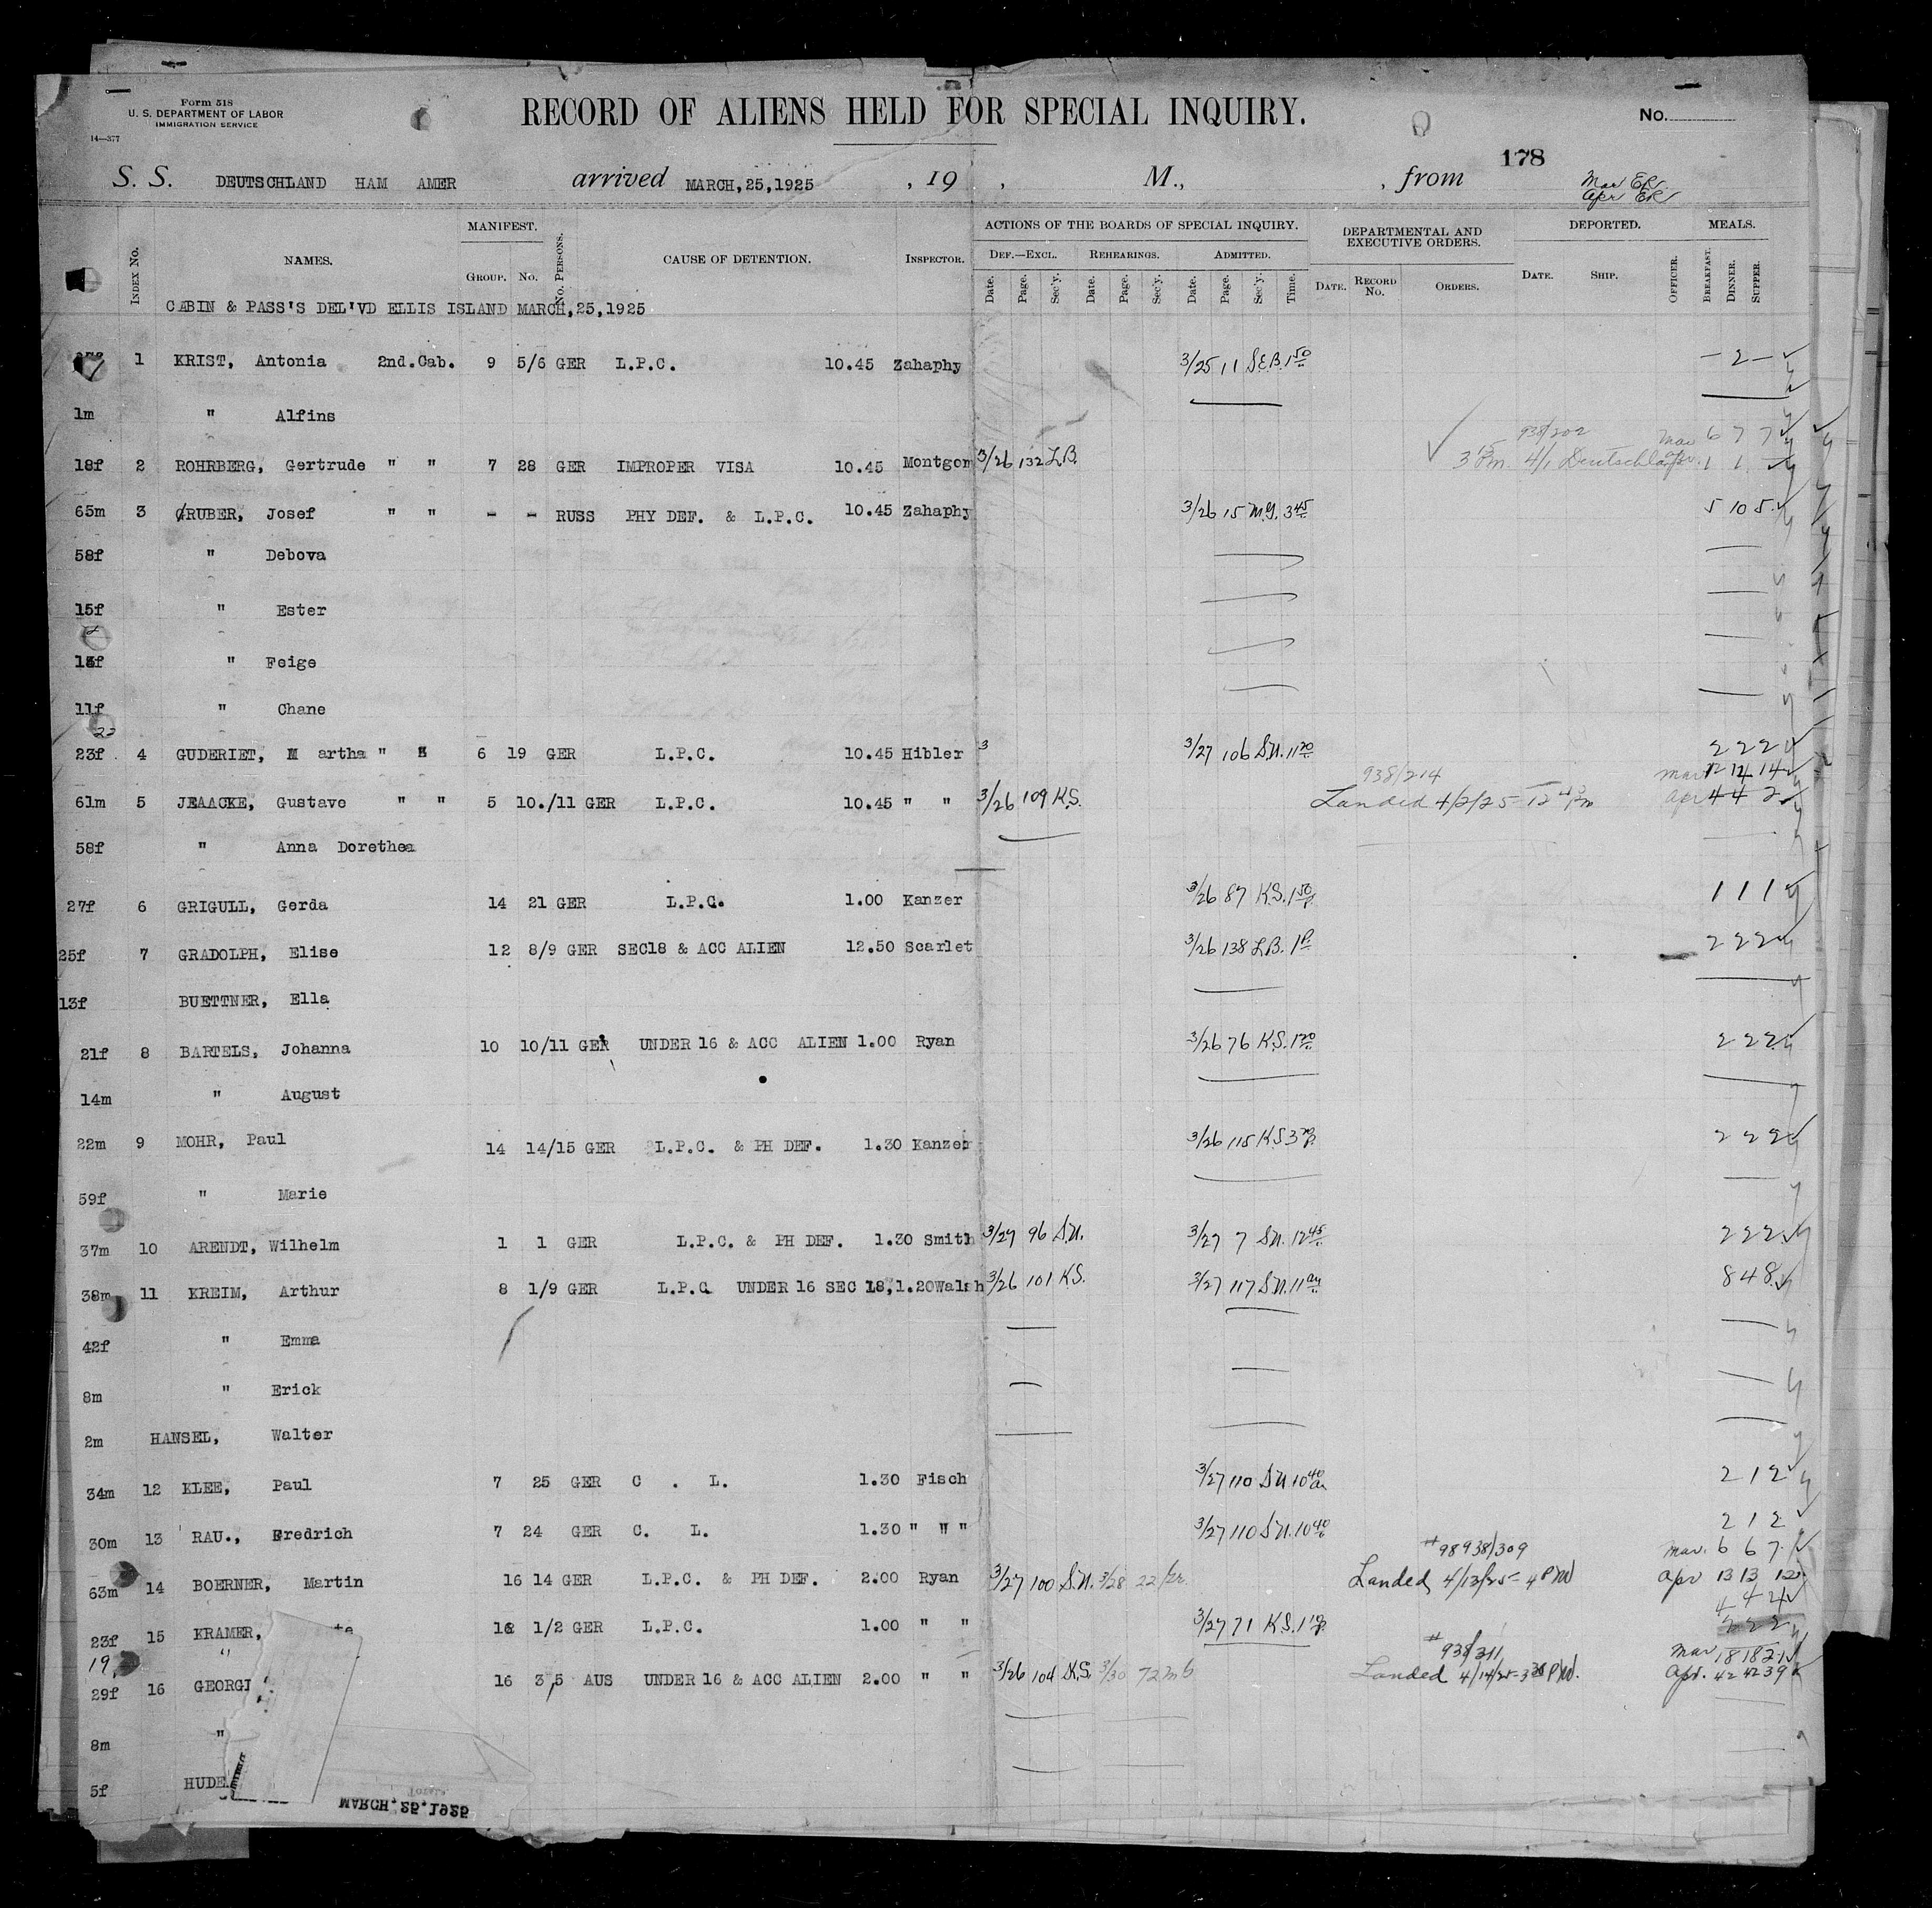 Form 518
U. S. DEPARTMENT OF LABOR
IMMIGRATION SERVICE
14—377
RECORD OF ALIENS HELD FOR SPECIAL INQUIRY.
No.
178
S. S. DEUTSCHLAND HAM AMER arrived MARCH,25,1925 , 19 , M., , from
Mar ER
Apr ER
INDEX No. NAMES. MANIFEST. GROUP. No. No. PERSONS. CAUSE OF DETENTION. INSPECTOR. ACTIONS OF THE BOARDS OF SPECIAL INQUIRY. DEF.—EXCL. Date. Page. Sec'y. REHEARINGS. Date. Page. Sec'y. ADMITTED. Date. Page. Sec'y. Time. DEPARTMENTAL AND EXECUTIVE ORDERS. DATE. RECORD No. ORDERS. DEPORTED. DATE. SHIP. OFFICER. MEALS. BREAKFAST. DINNER. SUPPER.
CABIN & PASS'S DEL'VD ELLIS ISLAND MARCH,25,1925
1 KRIST, Antonia 2nd.Cab. 9 5/6 GER L.P.C. 10.45 Zahaphy 3/25 11 S.E.B. 1 50 — 2 —
1m " Alfins
938/202 Mar 6 7 7
18f 2 ROHRBERG, Gertrude " " 7 28 GER IMPROPER VISA 10.45 Montgom 3/26 132 L.B. 3 15 Pm. 4/1 Deutschland Apr. 1 1
65m 3 GRUBER, Josef " " - - RUSS PHY DEF. & L.P.C. 10.45 Zahaphy 3/26 15 M.G. 3 45 5 10 5
58f " Debova
15f " Ester
f " Feige
11f " Chane
23f 4 GUDERIET, M artha " " 6 19 GER L.P.C. 10.45 Hibler 3 3/27 106 S.N. 11 20 2 2 2
938/214 Mar 12 14 14
61m 5 JEAACKE, Gustave " " 5 10./11 GER L.P.C. 10.45 " " 3/26 109 K.S. Landed 4/2/25 - 12 45 Pm Apr 4 4 2
58f " Anna Dorethea
27f 6 GRIGULL, Gerda 14 21 GER L.P.C. 1.00 Kanzer 3/26 87 K.S. 1 50 p. 1 1 1
25f 7 GRADOLPH, Elise 12 8/9 GER SEC18 & ACC ALIEN 12.50 Scarlet 3/26 138 L.B. 1 P. 2 2 2
13f BUETTNER, Ella
21f 8 BARTELS, Johanna 10 10/11 GER UNDER 16 & ACC ALIEN 1.00 Ryan 3/26 76 K.S. 1 20 2 2 2
14m " August
22m 9 MOHR, Paul 14 14/15 GER L.P.C. & PH DEF. 1.30 Kanzer 3/26 115 K.S. 3 p. 2 2 2
59f " Marie
37m 10 ARENDT, Wilhelm 1 1 GER L.P.C. & PH DEF. 1.30 Smith 3/27 96 S.N. 3/27 7 S.N. 12 45 2 2 2
38m 11 KREIM, Arthur 8 1/9 GER L.P.C UNDER 16 SEC 18, 1.20 Walsh 3/26 101 K.S. 3/27 117 S.N. 11 8 4 8
42f " Emma
8m " Erick
2m HANSEL, Walter
34m 12 KLEE, Paul 7 25 GER C . L. 1.30 Fisch 3/27 110 S.N. 10 40 2 1 2
30m 13 RAU., Fredrich 7 24 GER C. L. 1.30 " " " 3/27 110 S.N. 10 40 2 1 2
#98938/309 Mar. 6 6 7
63m 14 BOERNER, Martin 16 14 GER L.P.C. & PH DEF. 2.00 Ryan 3/27 100 S.N. 3/28 22 Landed 4/13/25 - 4 PM Apr 13 13 12
4 4 4
23f 15 KRAMER, 1/2 GER L.P.C. 1.00 " " 3/27 71 K.S. 1
19 " #938/311 Mar 18 18 21
29f 16 GEORGI 16 3,5 AUS UNDER 16 & ACC ALIEN 2.00 " " 3/26 104 K.S. 3/30 72 Landed 4/14/25 - 3 30 PM. Apr. 42 42 39
8m "
5f HUDE
MARCH,25,1925